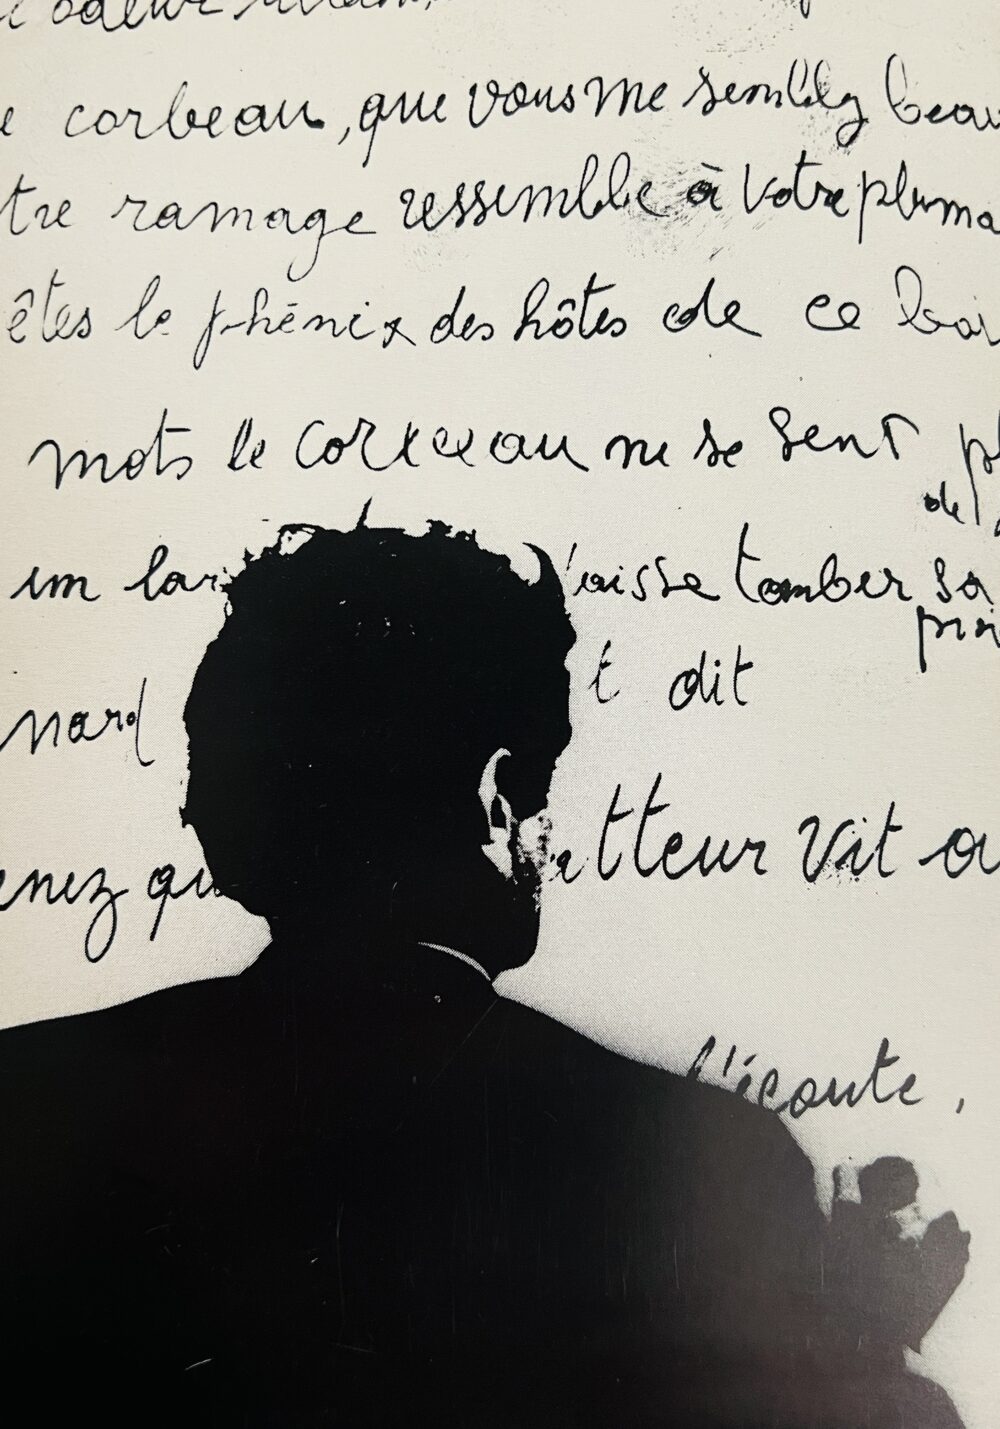 l'odeur
corbeau, que vous me semblez beau
tre ramage ressemble à votre pluma
êtes le phénix des hôtes de ce boi
mots le corbeau ne se sent pl
de
un lar laisse tomber sa
proi
nard t dit
enez qu atteur vit a
l'écoute,